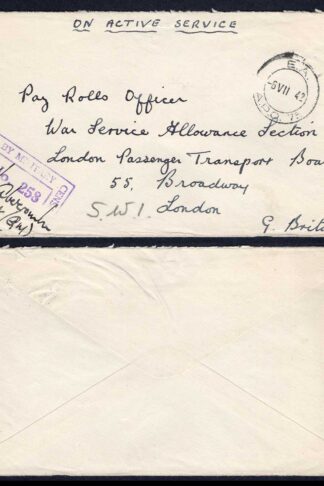 ON ACTIVE SERVICE
E.A.
-6 VII 42
A.P.O. 78
Pay Rolls Officer
War Service Allowance Section
London Passenger Transport Boa
55, Broadway
S.W.1. London
G. Brit
BY
CENS
253